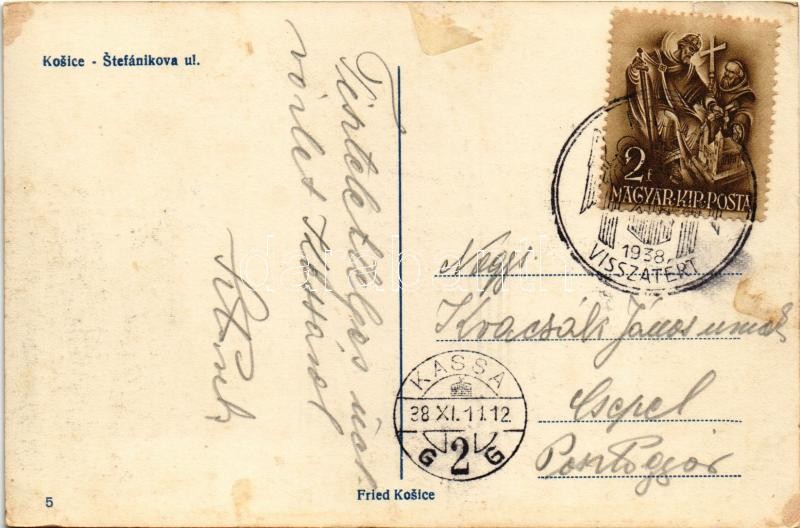 Košice - Štefánikova ul.
Tiszteletteljes üd-
vözlet Kassáról
2f
MAGYAR·KIR·POSTA
1938.
VISSZATÉRT
Nagys.
Kvacsák János urnak
Csepel
KASSA
38 XI. 11.12
G 2 G
5
Fried Košice